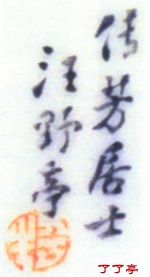 傳芳居士
汪野亭
了了亭